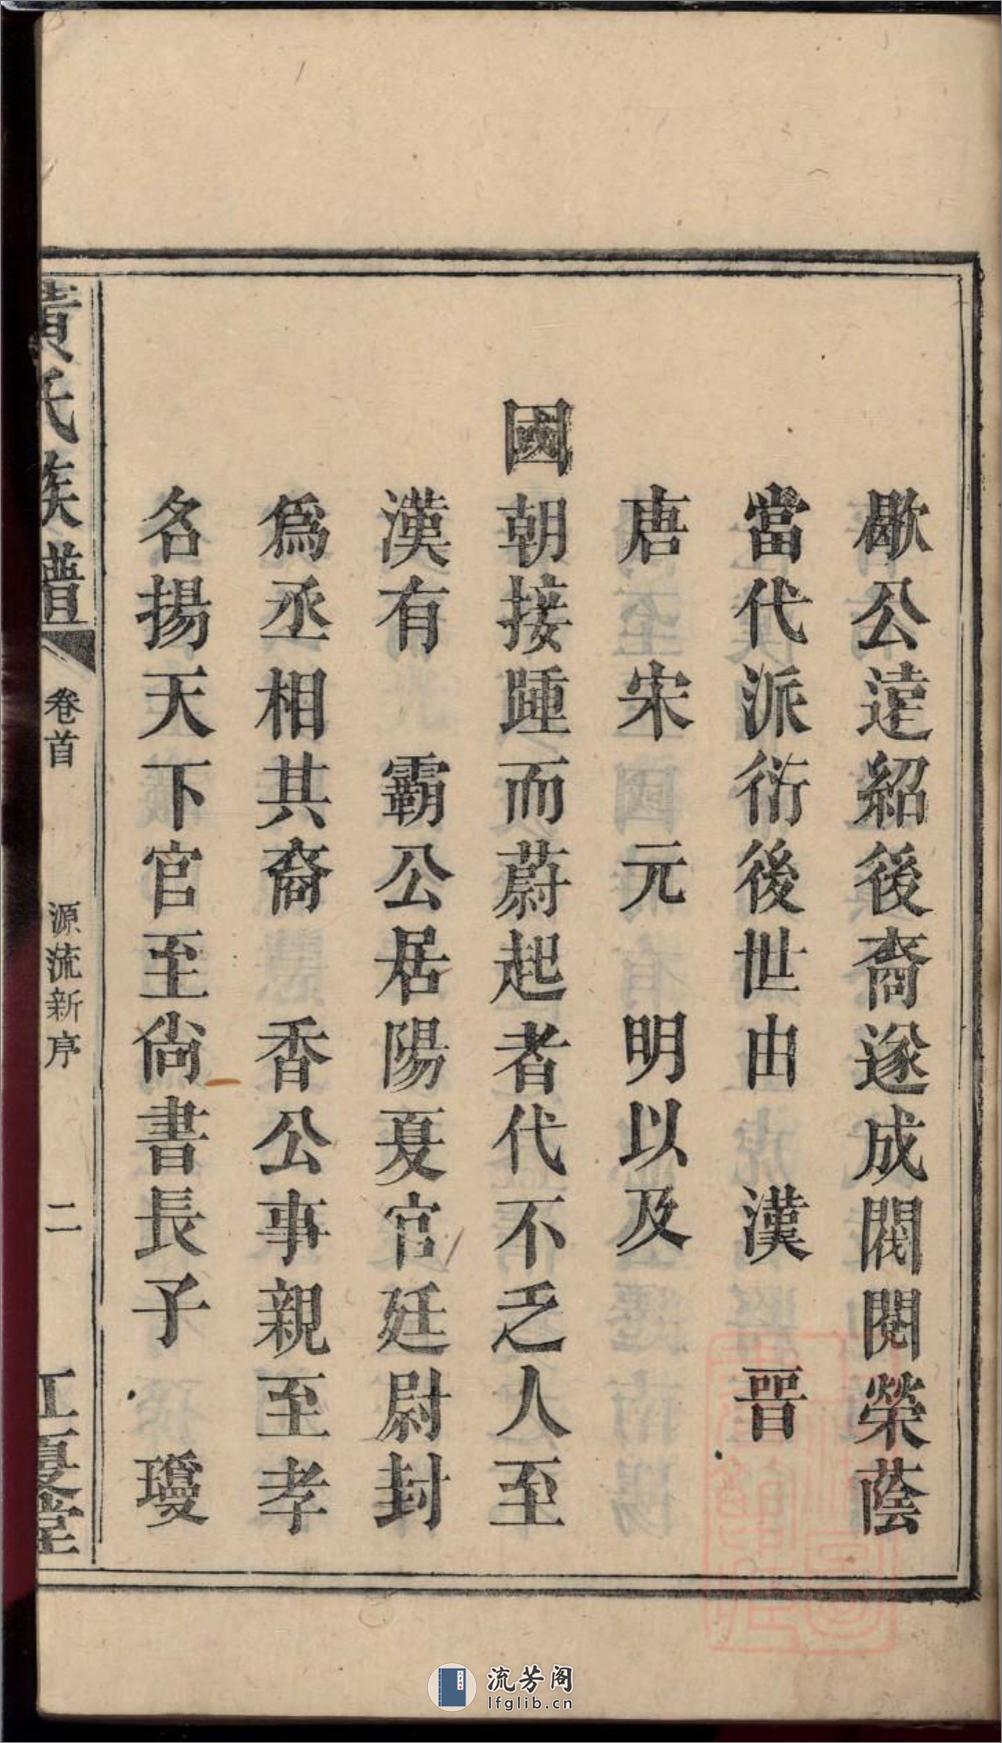 歇公逹紹後裔遂成閥閱榮蔭
當代派衍後世由　漢　晋
唐　宋　元　明以及
國朝接踵而蔚起者代不乏人至
漢有　霸公居陽夏官廷尉封
爲丞相其裔　香公事親至孝
名揚天下官至尙書長子　瓊
黃氏族譜　卷首　源流新序　二　江夏堂
流芳阁
lfglib.cn